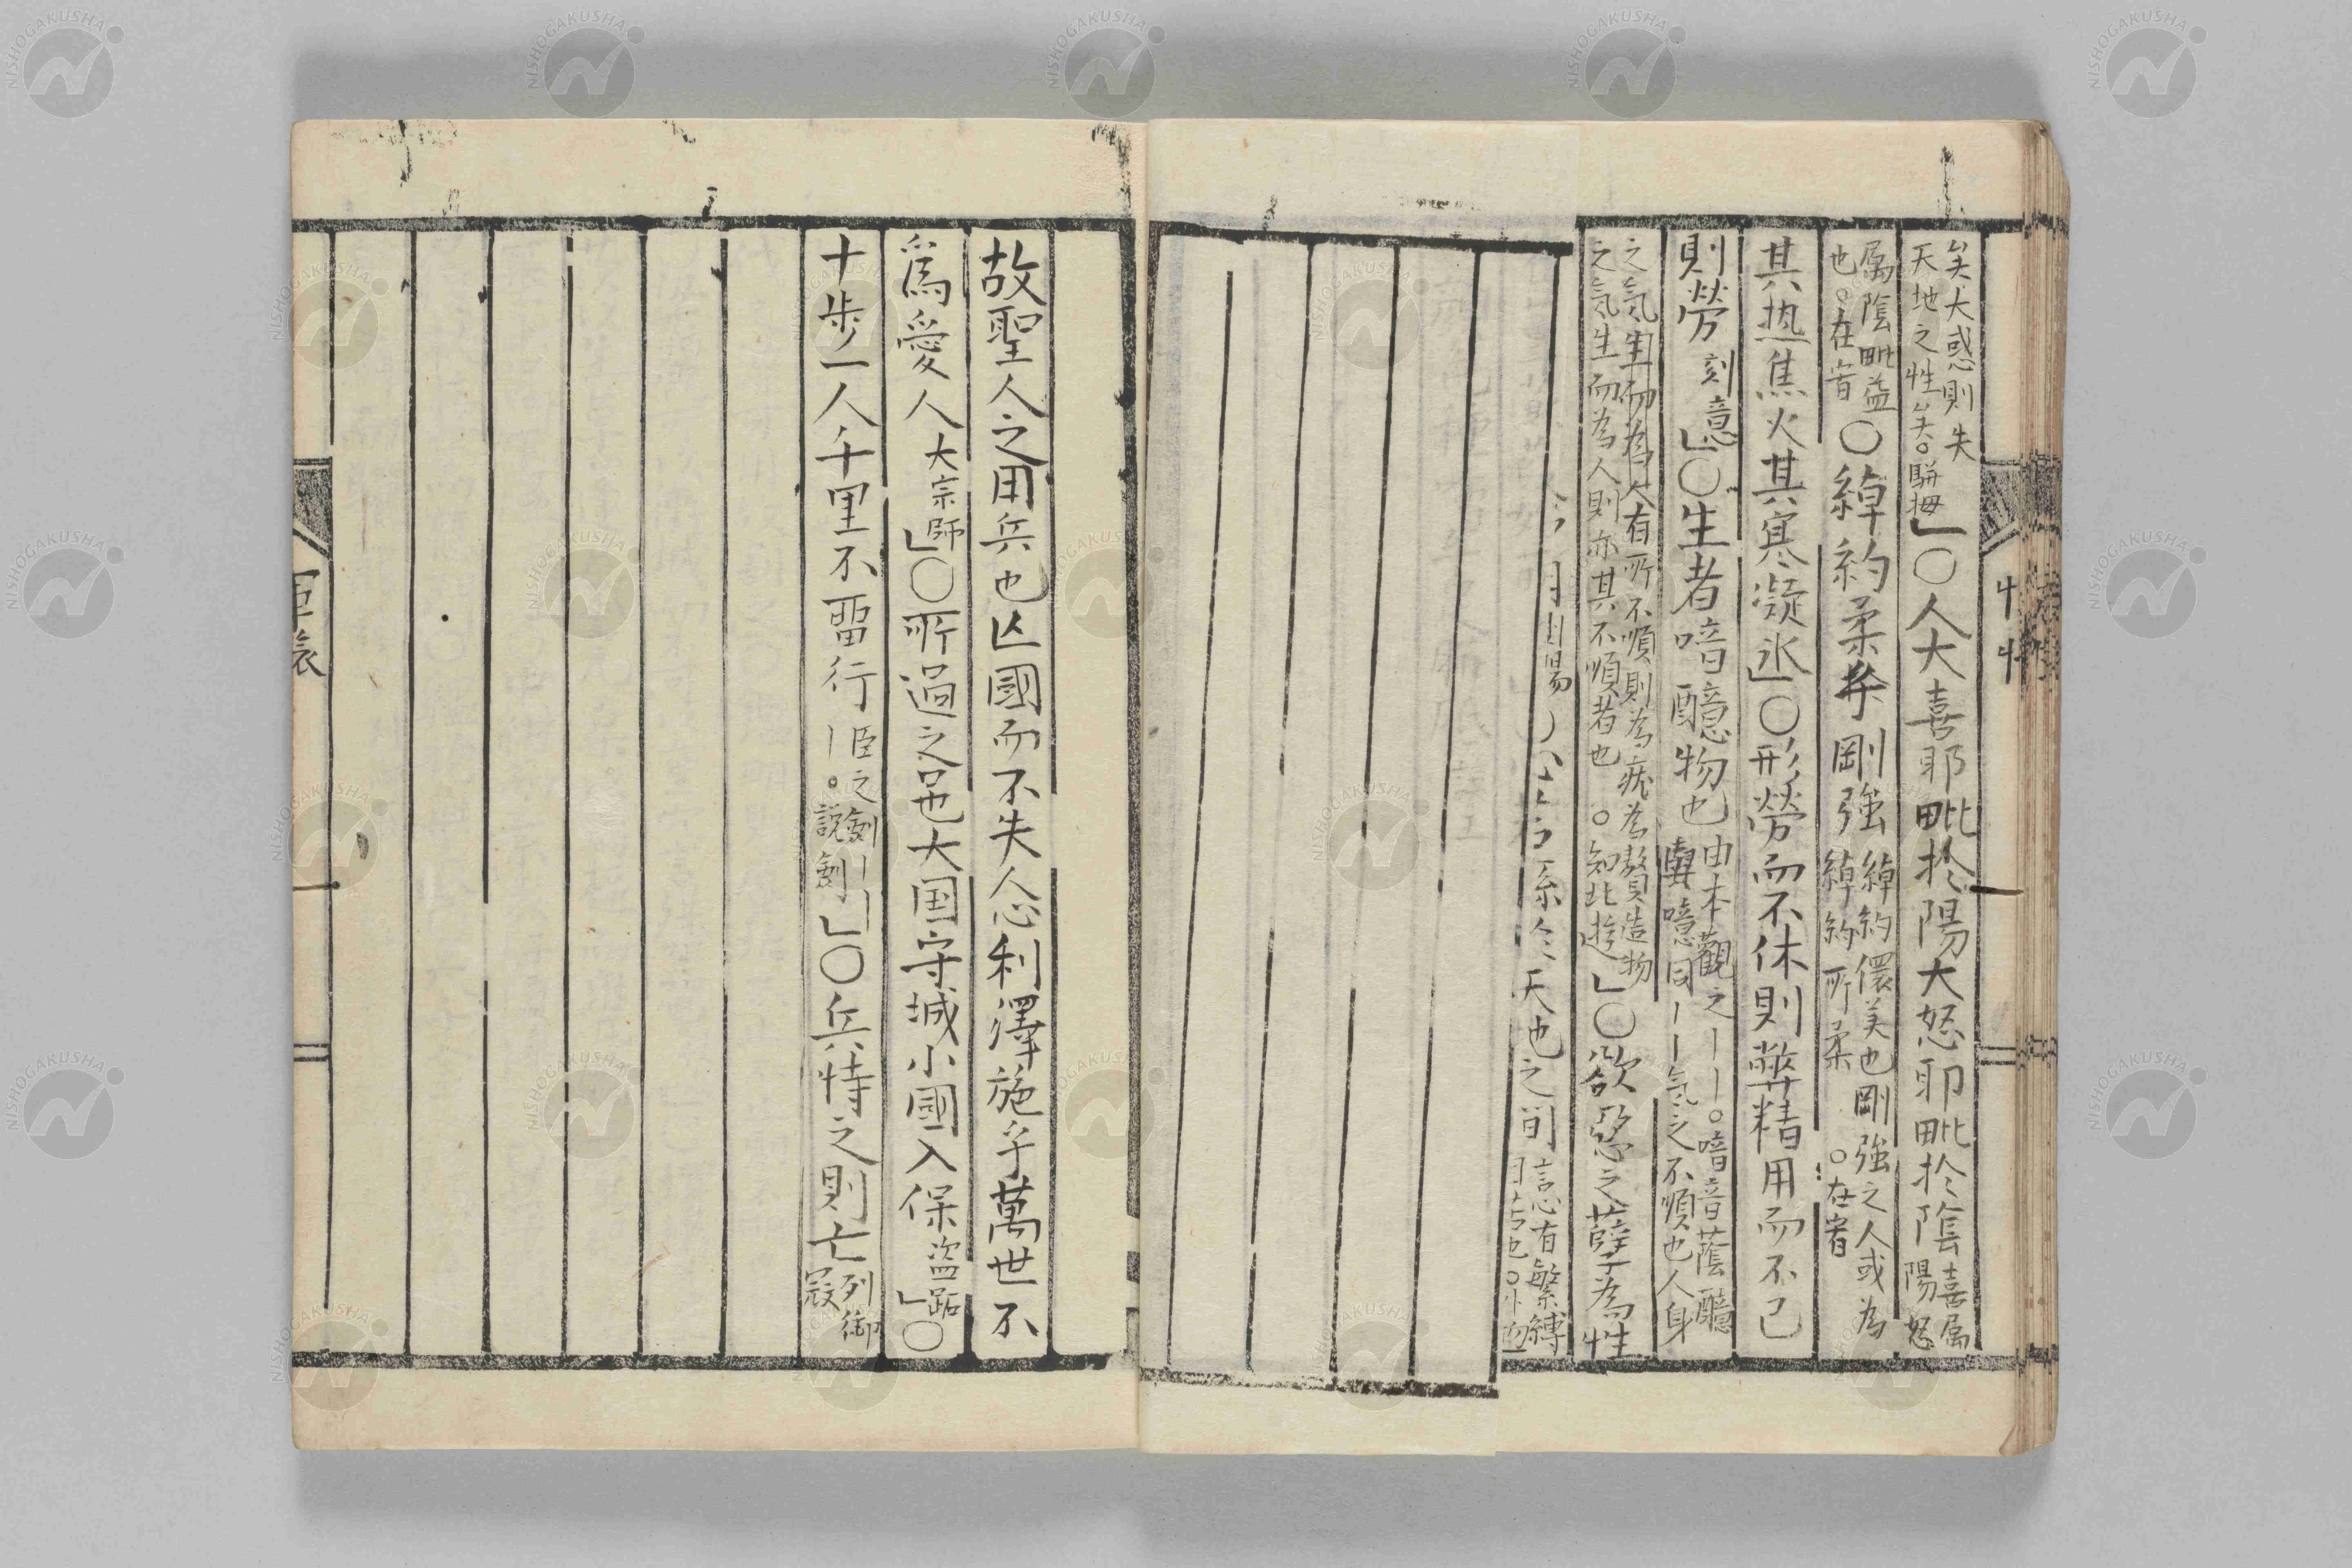 矣大惑則失
天地之性矣。駢拇」〇人大喜耶毗於陽大怒耶毗於陰喜属
陽怒
属陰毗益
也。在宥〇綽約柔乎剛強綽約儇美也剛強之人或為
綽約所柔。在宥
其热焦火其寒凝氷」〇形勞而不休則弊精用而不已
則勞刻意」〇生者喑醷物也由本觀之〡〡。喑音蔭醷
與噫同〡〡気之不順也人身
之気生而為人有所不順則為疣為贅造物
之気生而為人則亦其不順者也。知北遊」〇欲惡之孽為性
天也之间言心有繫縛
故聖人之用兵也亾國而不失人心利澤施乎萬世不
爲愛人大宗師」〇所過之邑大国守城小國入保盗跖」〇
十步一人千里不畱行臣之劒〡〡
〡。説劍」〇兵恃之則亡列御
寇
NISHOGAKUSHA